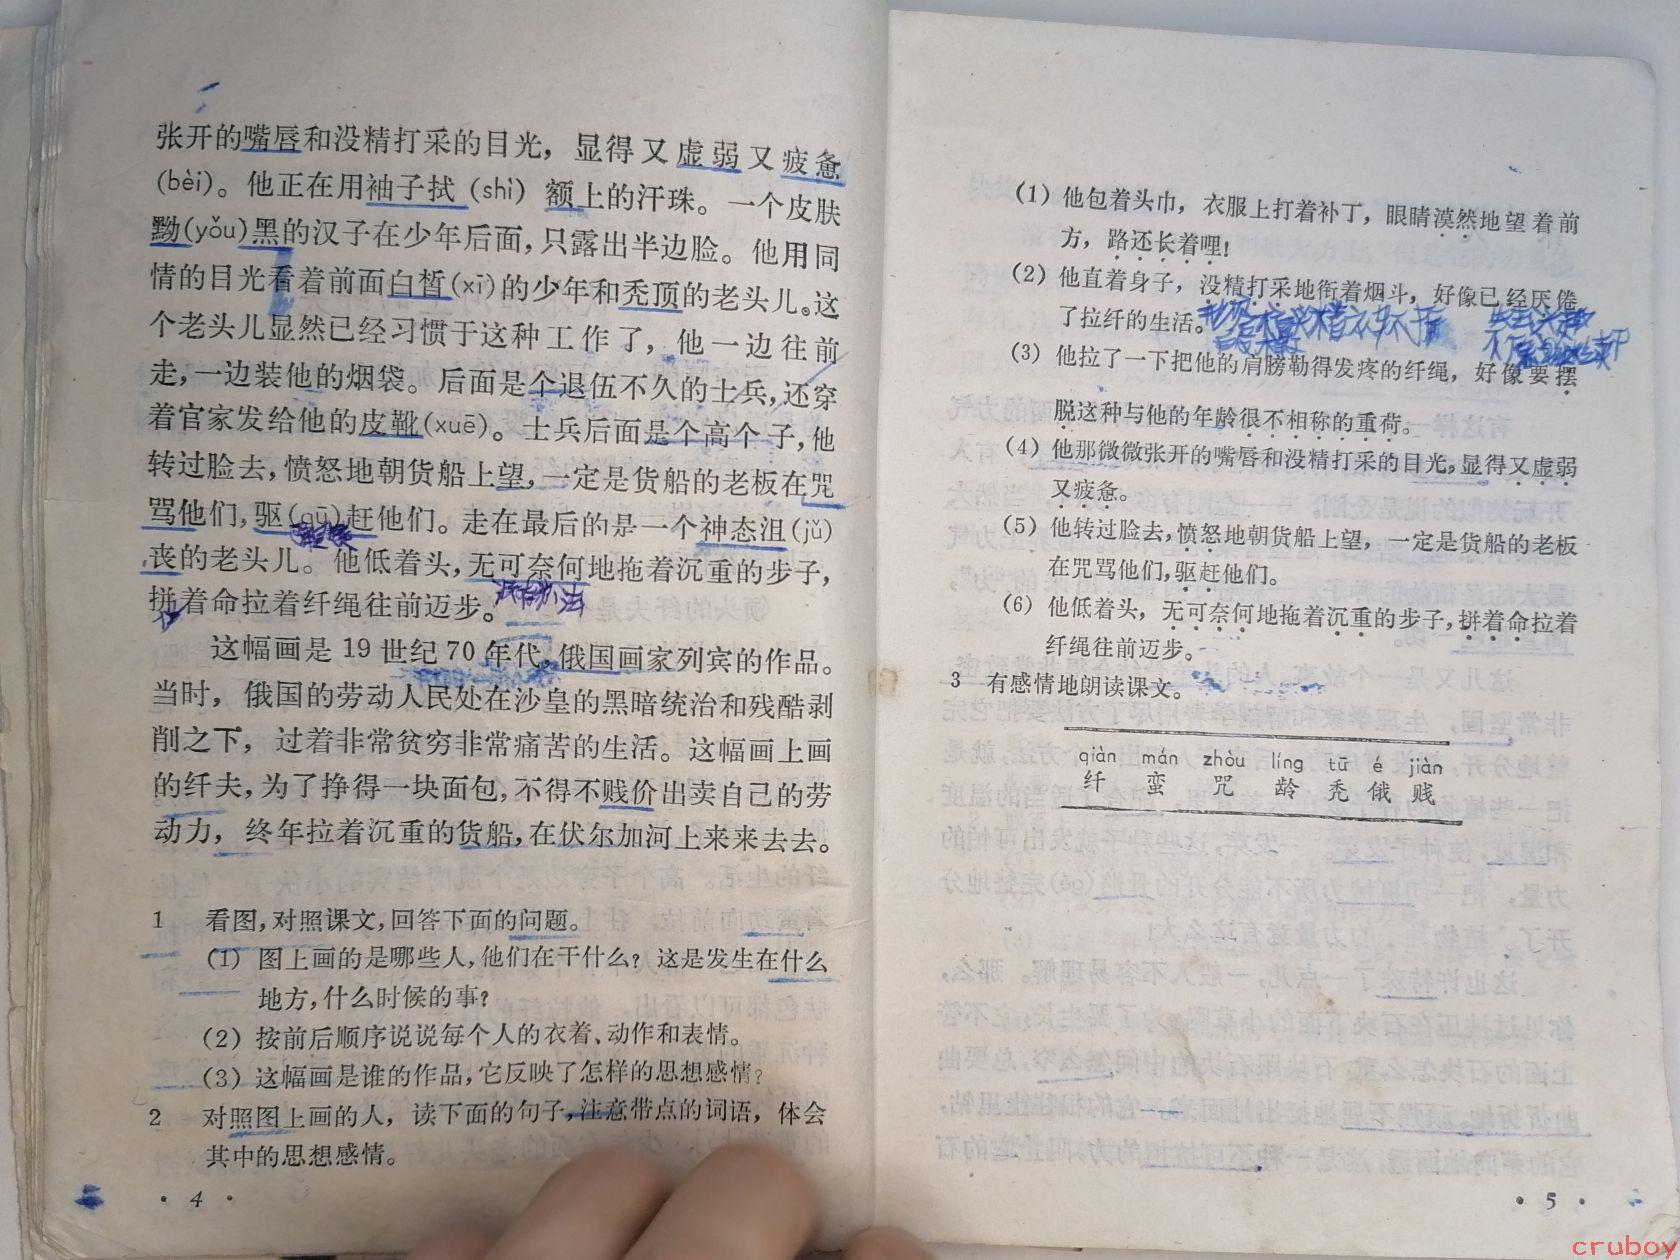 张开的嘴唇和没精打采的目光，显得又虚弱又疲惫
(bèi)。他正在用袖子拭(shì)额上的汗珠。一个皮肤
黝(yǒu)黑的汉子在少年后面，只露出半边脸。他用同
情的目光看着前面白皙(xī)的少年和秃顶的老头儿。这
个老头儿显然已经习惯于这种工作了，他一边往前
走，一边装他的烟袋。后面是个退伍不久的士兵，还穿
着官家发给他的皮靴(xuē)。士兵后面是个高个子，他
转过脸去，愤怒地朝货船上望，一定是货船的老板在咒
骂他们，驱(qū)赶他们。走在最后的是一个神态沮(jǔ)
丧的老头儿。他低着头，无可奈何地拖着沉重的步子，
拼着命拉着纤绳往前迈步。
没有办法
这幅画是19世纪70年代，俄国画家列宾的作品。
当时，俄国的劳动人民处在沙皇的黑暗统治和残酷剥
削之下，过着非常贫穷非常痛苦的生活。这幅画上画
的纤夫，为了挣得一块面包，不得不贱价出卖自己的劳
动力，终年拉着沉重的货船，在伏尔加河上来来去去。
1 看图，对照课文，回答下面的问题。
(1) 图上画的是哪些人，他们在干什么？这是发生在什么
地方，什么时候的事？
(2) 按前后顺序说说每个人的衣着、动作和表情。
(3) 这幅画是谁的作品，它反映了怎样的思想感情？
2 对照图上画的人，读下面的句子，注意带点的词语，体会
其中的思想感情。
· 4 ·
(1) 他包着头巾，衣服上打着补丁，眼睛漠然地望着前
方，路还长着哩！
(2) 他直着身子，没精打采地衔着烟斗，好像已经厌倦
了拉纤的生活。
(3) 他拉了一下把他的肩膀勒得发疼的纤绳，好像要摆
脱这种与他的年龄很不相称的重荷。
(4) 他那微微张开的嘴唇和没精打采的目光，显得又虚弱
又疲惫。
(5) 他转过脸去，愤怒地朝货船上望，一定是货船的老板
在咒骂他们，驱赶他们。
(6) 他低着头，无可奈何地拖着沉重的步子，拼着命拉着
纤绳往前迈步。
3 有感情地朗读课文。
qiàn mán zhòu líng tū é jiàn
纤 蛮 咒 龄 秃 俄 贱
· 5 ·
cruboy